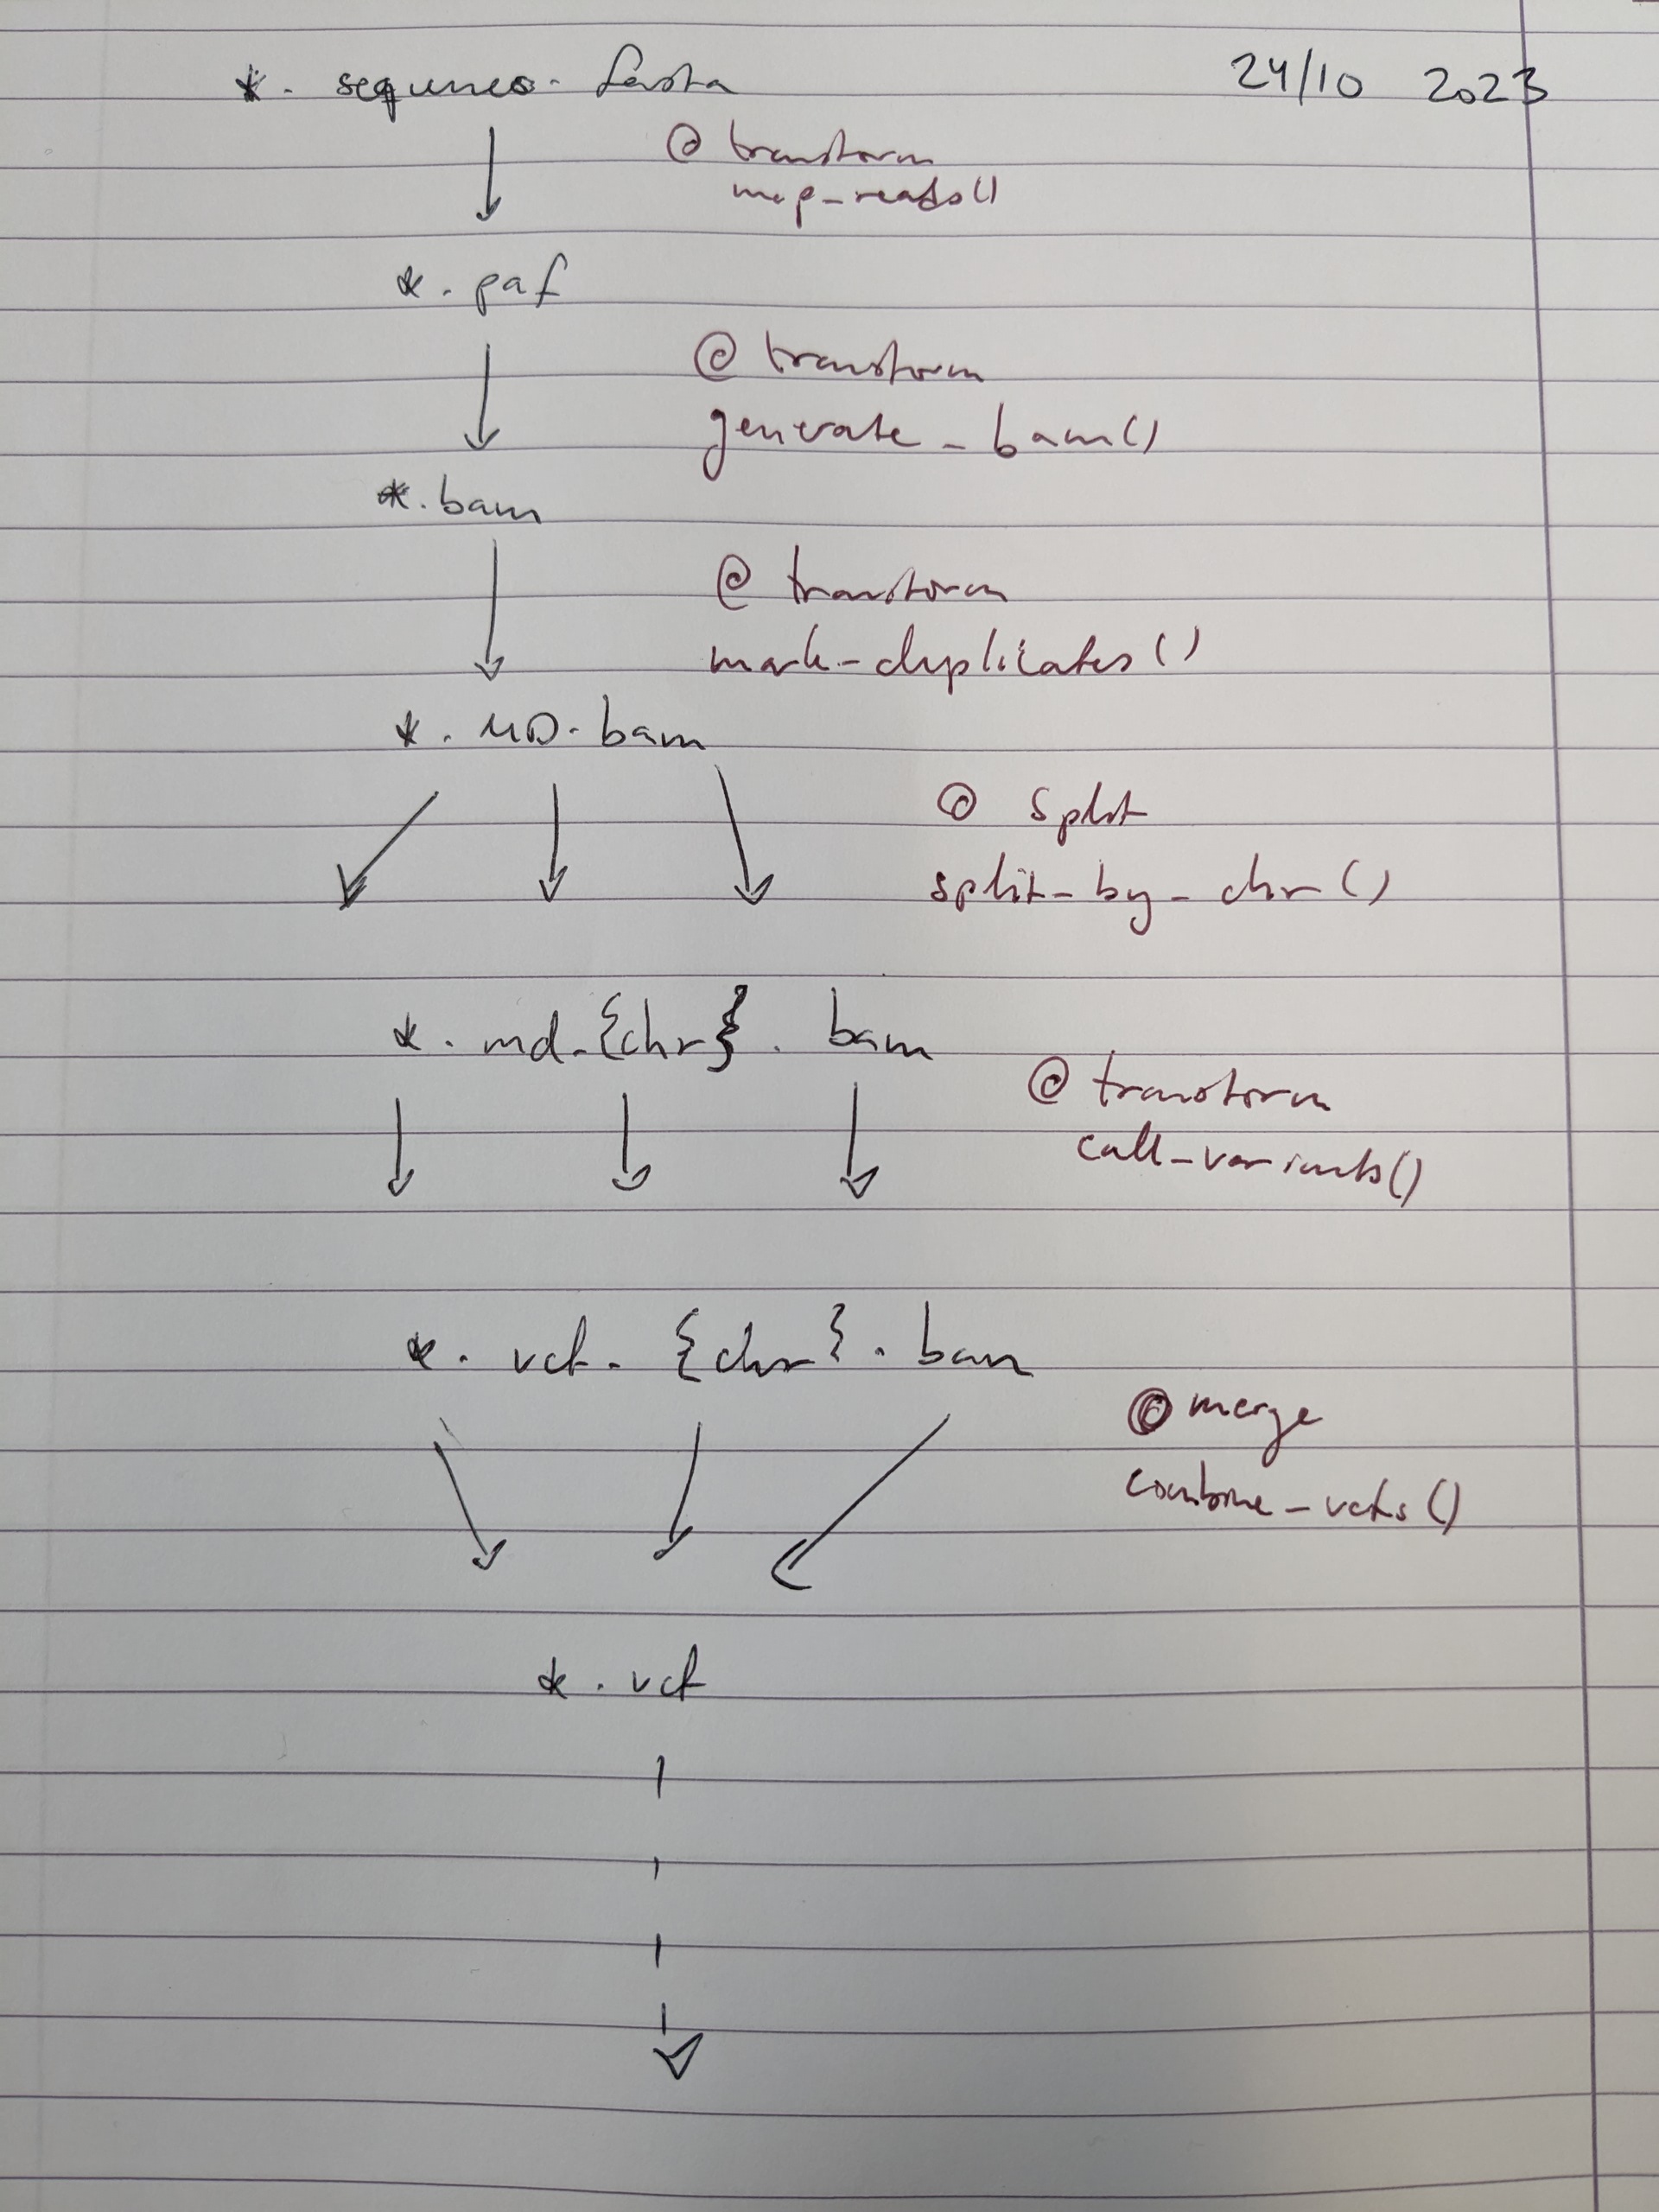 *. sequences. fasta 24/10 2023
@ transform
map_reads()
*. paf
@ transform
generate_bam()
*.bam
@ transform
mark_duplicates()
*. MD. bam
@ split
split_by_chr()
*. md.{chr}. bam
@ transform
call_variants()
*. vcf. {chr}. bam
@ merge
combine_vcfs()
*. vcf